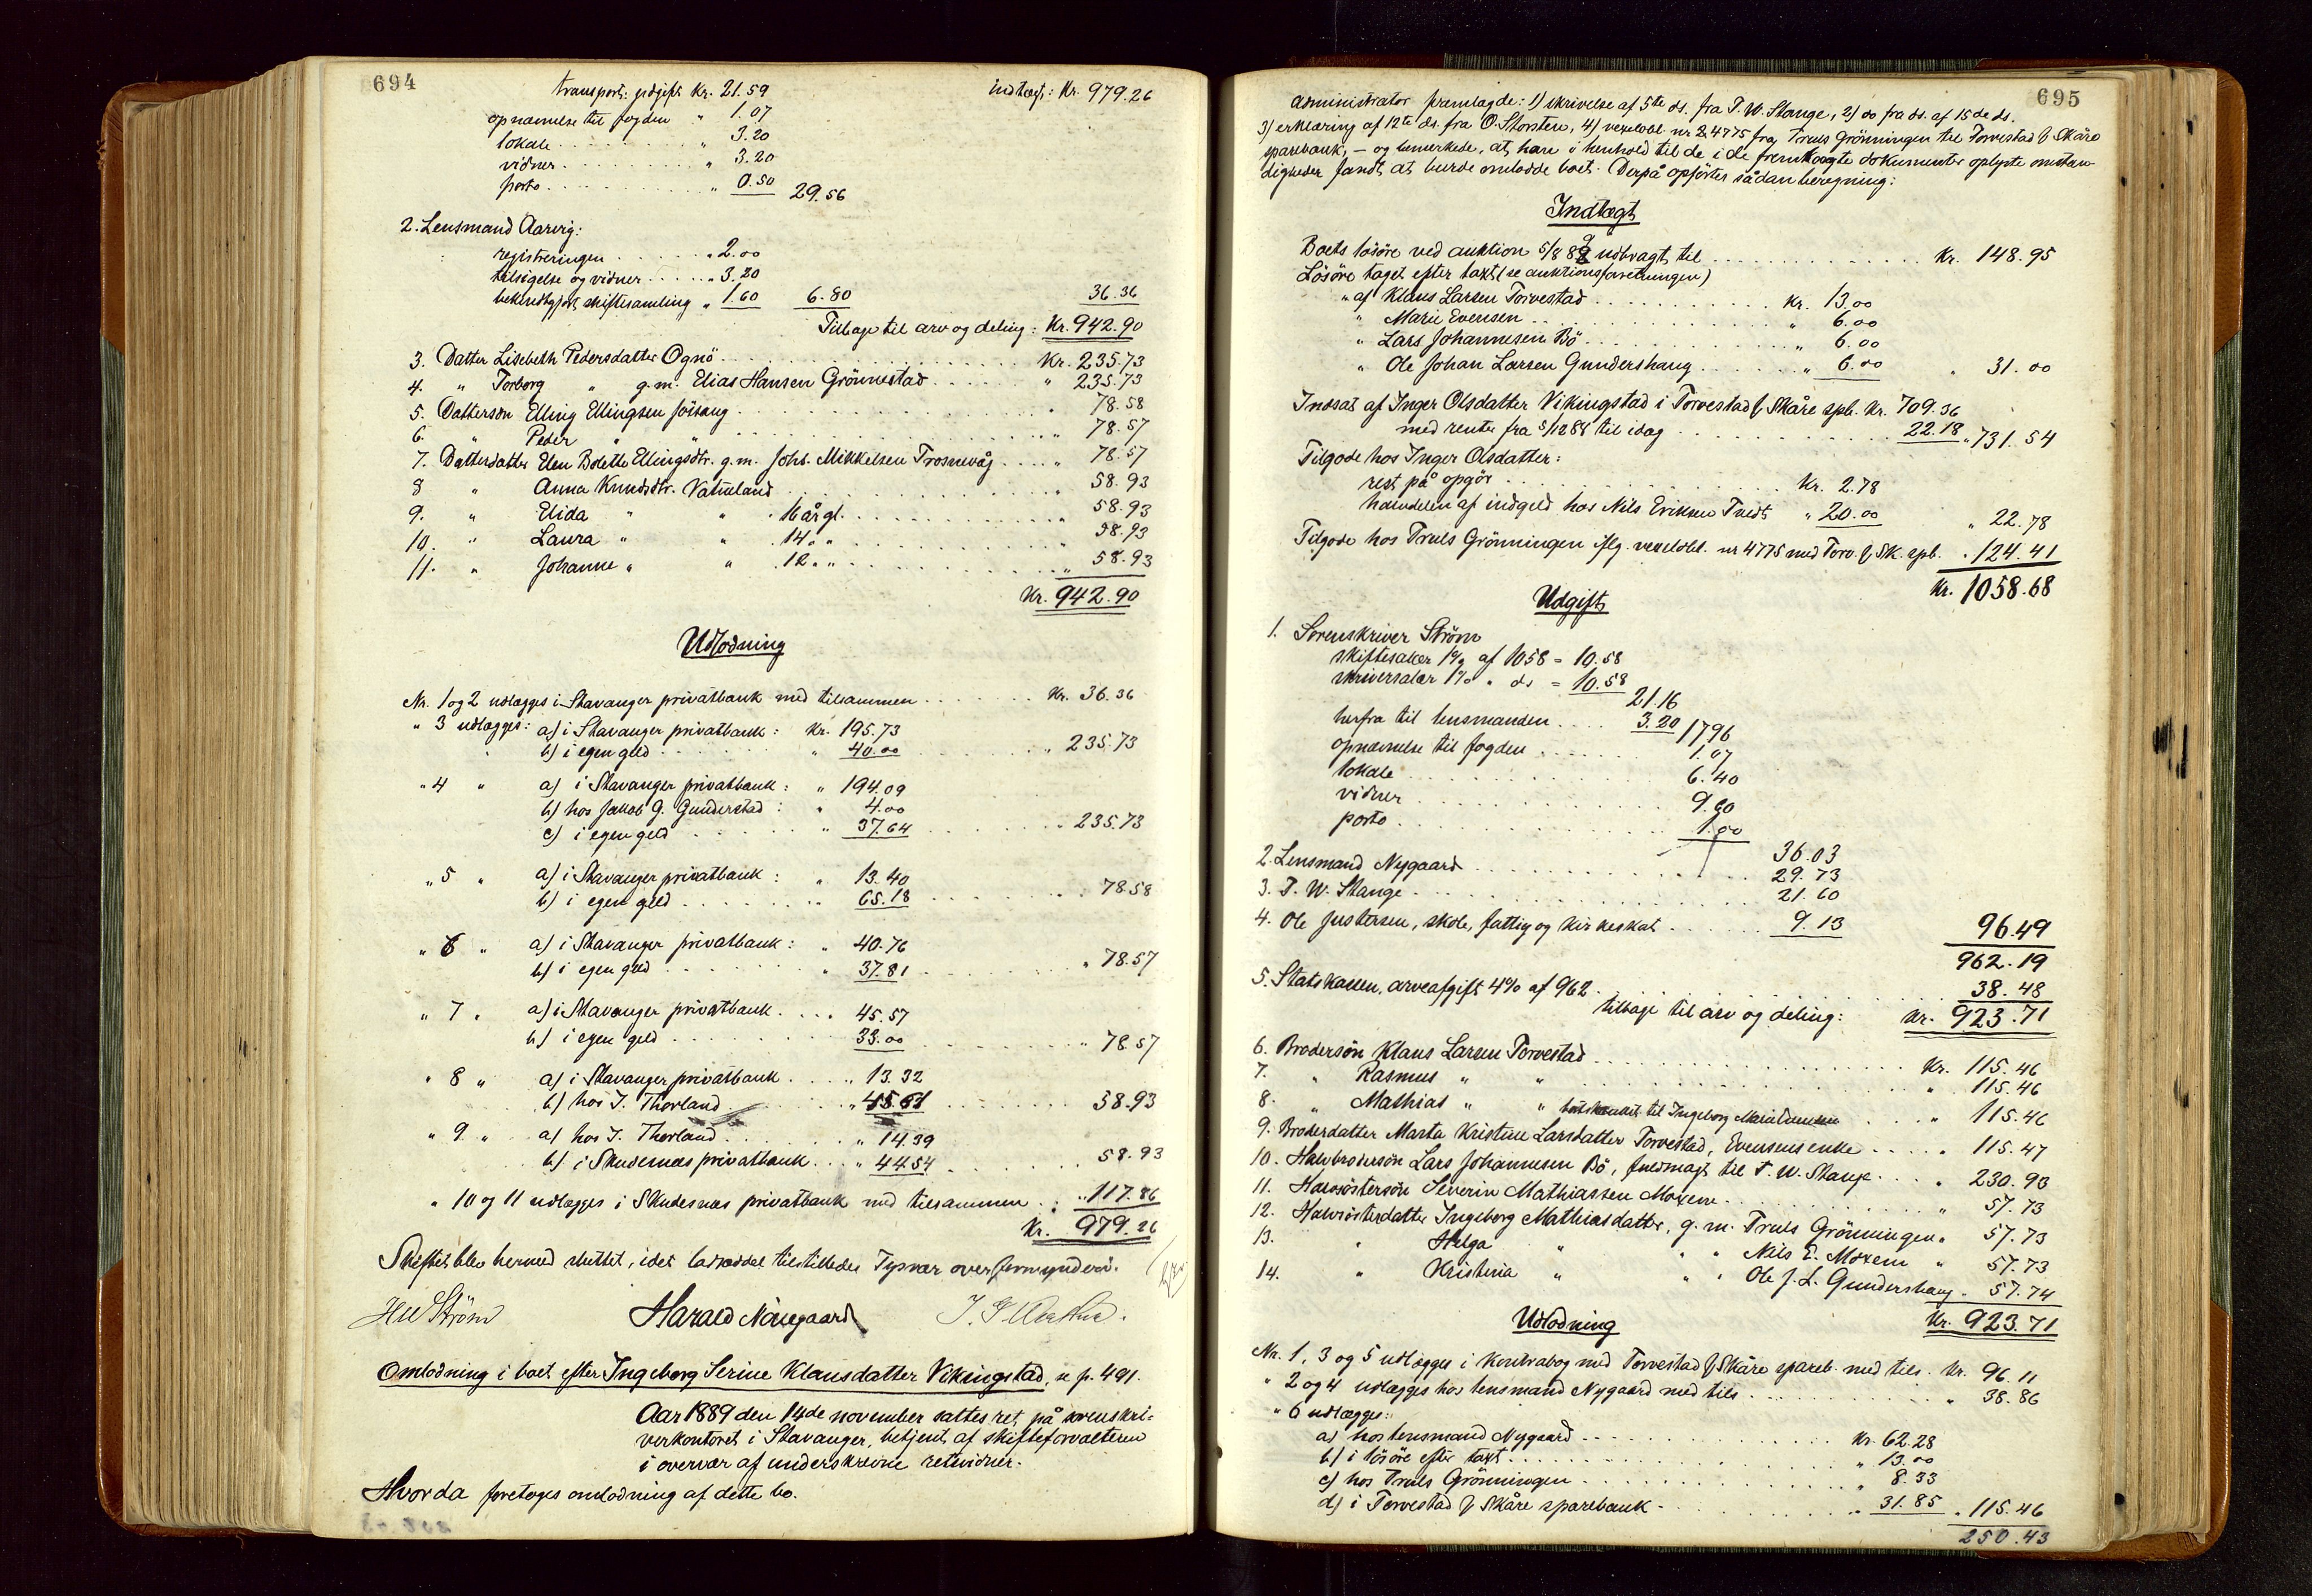 694
transport: udgift Kr. 21.59 indtægt: Kr. 979.26
opnævnelse til fogden " 1.07
lokale " 3.20
vidner " 3.20
porto " 0.50 29.56
2. Lensmand Aarvig:
registreringen " 2.00
tilsigelse og vidner " 3.20
bekjendtgjort skiftesamling " 1.60 6.80 36.36
Tilbage til arv og deling: Kr. 942.90
3. Datter Lisebeth Pedersdatter Ognö Kr. 235.73
4. " Torborg " g.m. Elias Hansen Grönnestad " 235.73
5. Dattersön Elling Ellingsen " 78.58
6. " Peder " " " 78.57
7. Datterdatter Elen Bolette Ellingsdtr. g.m. Johs. Mikkelsen Trosnevåg " 78.57
8 " Anna Knudsdtr. Vatneland " 58.93
9. " Elida " " 16 år gl. " 58.93
10. " Laura " " 14 " " 58.93
11. " Johanne " " 12 " " " 58.93
Kr. 942.90
Udlodning
Nr. 1 og 2 udlægges i Stavanger privatbank med tilsammen Kr. 36.36
" 3 udlægges: a) i Stavanger privatbank: Kr. 195.73
b) i egen gjeld " 40.00 " 235.73
" 4 " a) i Stavanger privatbank: " 194.09
b) hos Jakob G. Gunderstad: " 4.00
c) i egen gjeld " 37.64 " 235.73
" 5 " a) i Stavanger privatbank: " 13.40
b) i egen gjeld " 65.18 " 78.58
" 6 " a) i Stavanger privatbank: " 40.76
b) i egen gjeld " 37.81 " 78.57
" 7 " a) i Stavanger privatbank " 45.57
b) i egen gjeld 33.00 " 78.57
" 8 " a) i Stavanger privatbank " 13.32
b) hos T. Thorland " 45.61 58.93
" 9 " a) hos T. Thorland " 14.39
b) i Skudesnæs privatbank " 44.54 58.93
" 10 og 11 udlægges i Skudesnæs privatbank med tilsammen " 117.86
Kr. 979.26
Skiftet blev hermed sluttet, idet lodseddel tilstilledes Tysvær overformynderi.
HW Ström Harald Norregaard
Omlodning i boet efter Ingeborg Serine Klausdatter Vikingstad, se p. 491.
Aar 1889 den 14de november sattes ret på sorenskri-
verkontoret i Stavanger, betjent af skifteforvalteren
i overvær af underskrevne retsvidner.
Hvorda foretoges omlodning af dette bo.
695
Administrator framlagde: 1) skrivelse af 5te ds. fra T. W. Stange, 2) do fra ds. af 15de ds.
3) erklæring af 12te ds. fra O. Storsten, 4) vexelobl. nr 4775 fra Truls Grönningen til Torvestad & Skåre
sparebank, – og bemerkede, at han i henhold til de i de fremlagte dokumenter oplyste omstæn-
digheder fandt at burde omlodde boet. Derpå opførtes sådan beregning:
Indtægt
Boets lösöre ved auktion 5/8 89 udbragt til Kr. 148.95
Lösöre taget efter taxt (se auktionsforretningen)
" af Klaus Larsen Torvestad Kr. 13.00
" Marie Evensen " 6.00
" Lars Johannesen Bö " 6.00
" Ole Johan Larsen Gundershaug " 6.00 " 31.00
Indsat af Inger Olsdatter Vikingstad i Torvestad & Skåre spb. Kr. 709.36
med rente fra 5/12 88 til idag 22.18 " 731.54
Tilgode hos Inger Olsdatter:
rest på opgör Kr. 2.78
halvdelen af indgjeld hos Nils Eriksen Tvedt " 20.00 " 22.78
Tilgode hos Truls Grönningen iflg. vexelobl. nr 4775 med Torv. & Sk. spb. " 124.41
Kr. 1058.68
Udgift
1. Sorenskriver Ström
skiftesalær 1% af 1058 = 10.58
skriversalær 1% " ds = 10.58
21.16
herfra til lensmanden 3.20 17.96
opnævnelse til fogden 1.07
lokale 6.40
vidner 9.60
porto 1.00
36.03
2. Lensmand Nygaard 29.73
3. T. W. Stange 21.60
4. Ole Justersen, skole, fattig og kirkeskat 9.13 96.49
962.19
5. Statskassen, arveafgift 4% af 962 38.48
tilbage til arv og deling: Kr. 923.71
6. Brodersön Klaus Larsen Torvestad Kr. 115.46
7. " Rasmus " " " 115.46
8. " Mathias " " til Ingeborg " 115.46
9. Broderdatter Marta Kristine Larsdatter Torvestad, Evensens enke " 115.47
10. Halvbrodersön Lars Johannesen Bö, fuldmagt til T. W. Stange " 230.93
11. Halvsöstersön Severin Mathiassen Moxem " 57.73
12. Halvsösterdatter Ingeborg Mathiasdatter, g.m. Truls Grönningen " 57.73
13. " Helga " " " Nils E. Moxem " 57.73
14. " Kristina " " " Ole J. L. Gundershaug " 57.74
Kr. 923.71
Udlodning
Nr. 1, 3 og 5 udlægges i kontrabog med Torvestad & Skåre spareb. med tils. Kr. 96.11
" 2 og 4 udlægges hos lensmand Nygaard med tils " 38.86
" 6 udlægges:
a) hos lensmand Nygaard Kr. 62.28
b) i lösöre efter taxt " 13.00
c) hos Truls Grönningen " 8.33
d) i Torvestad & Skåre sparebank " 31.85 " 115.46
250.43